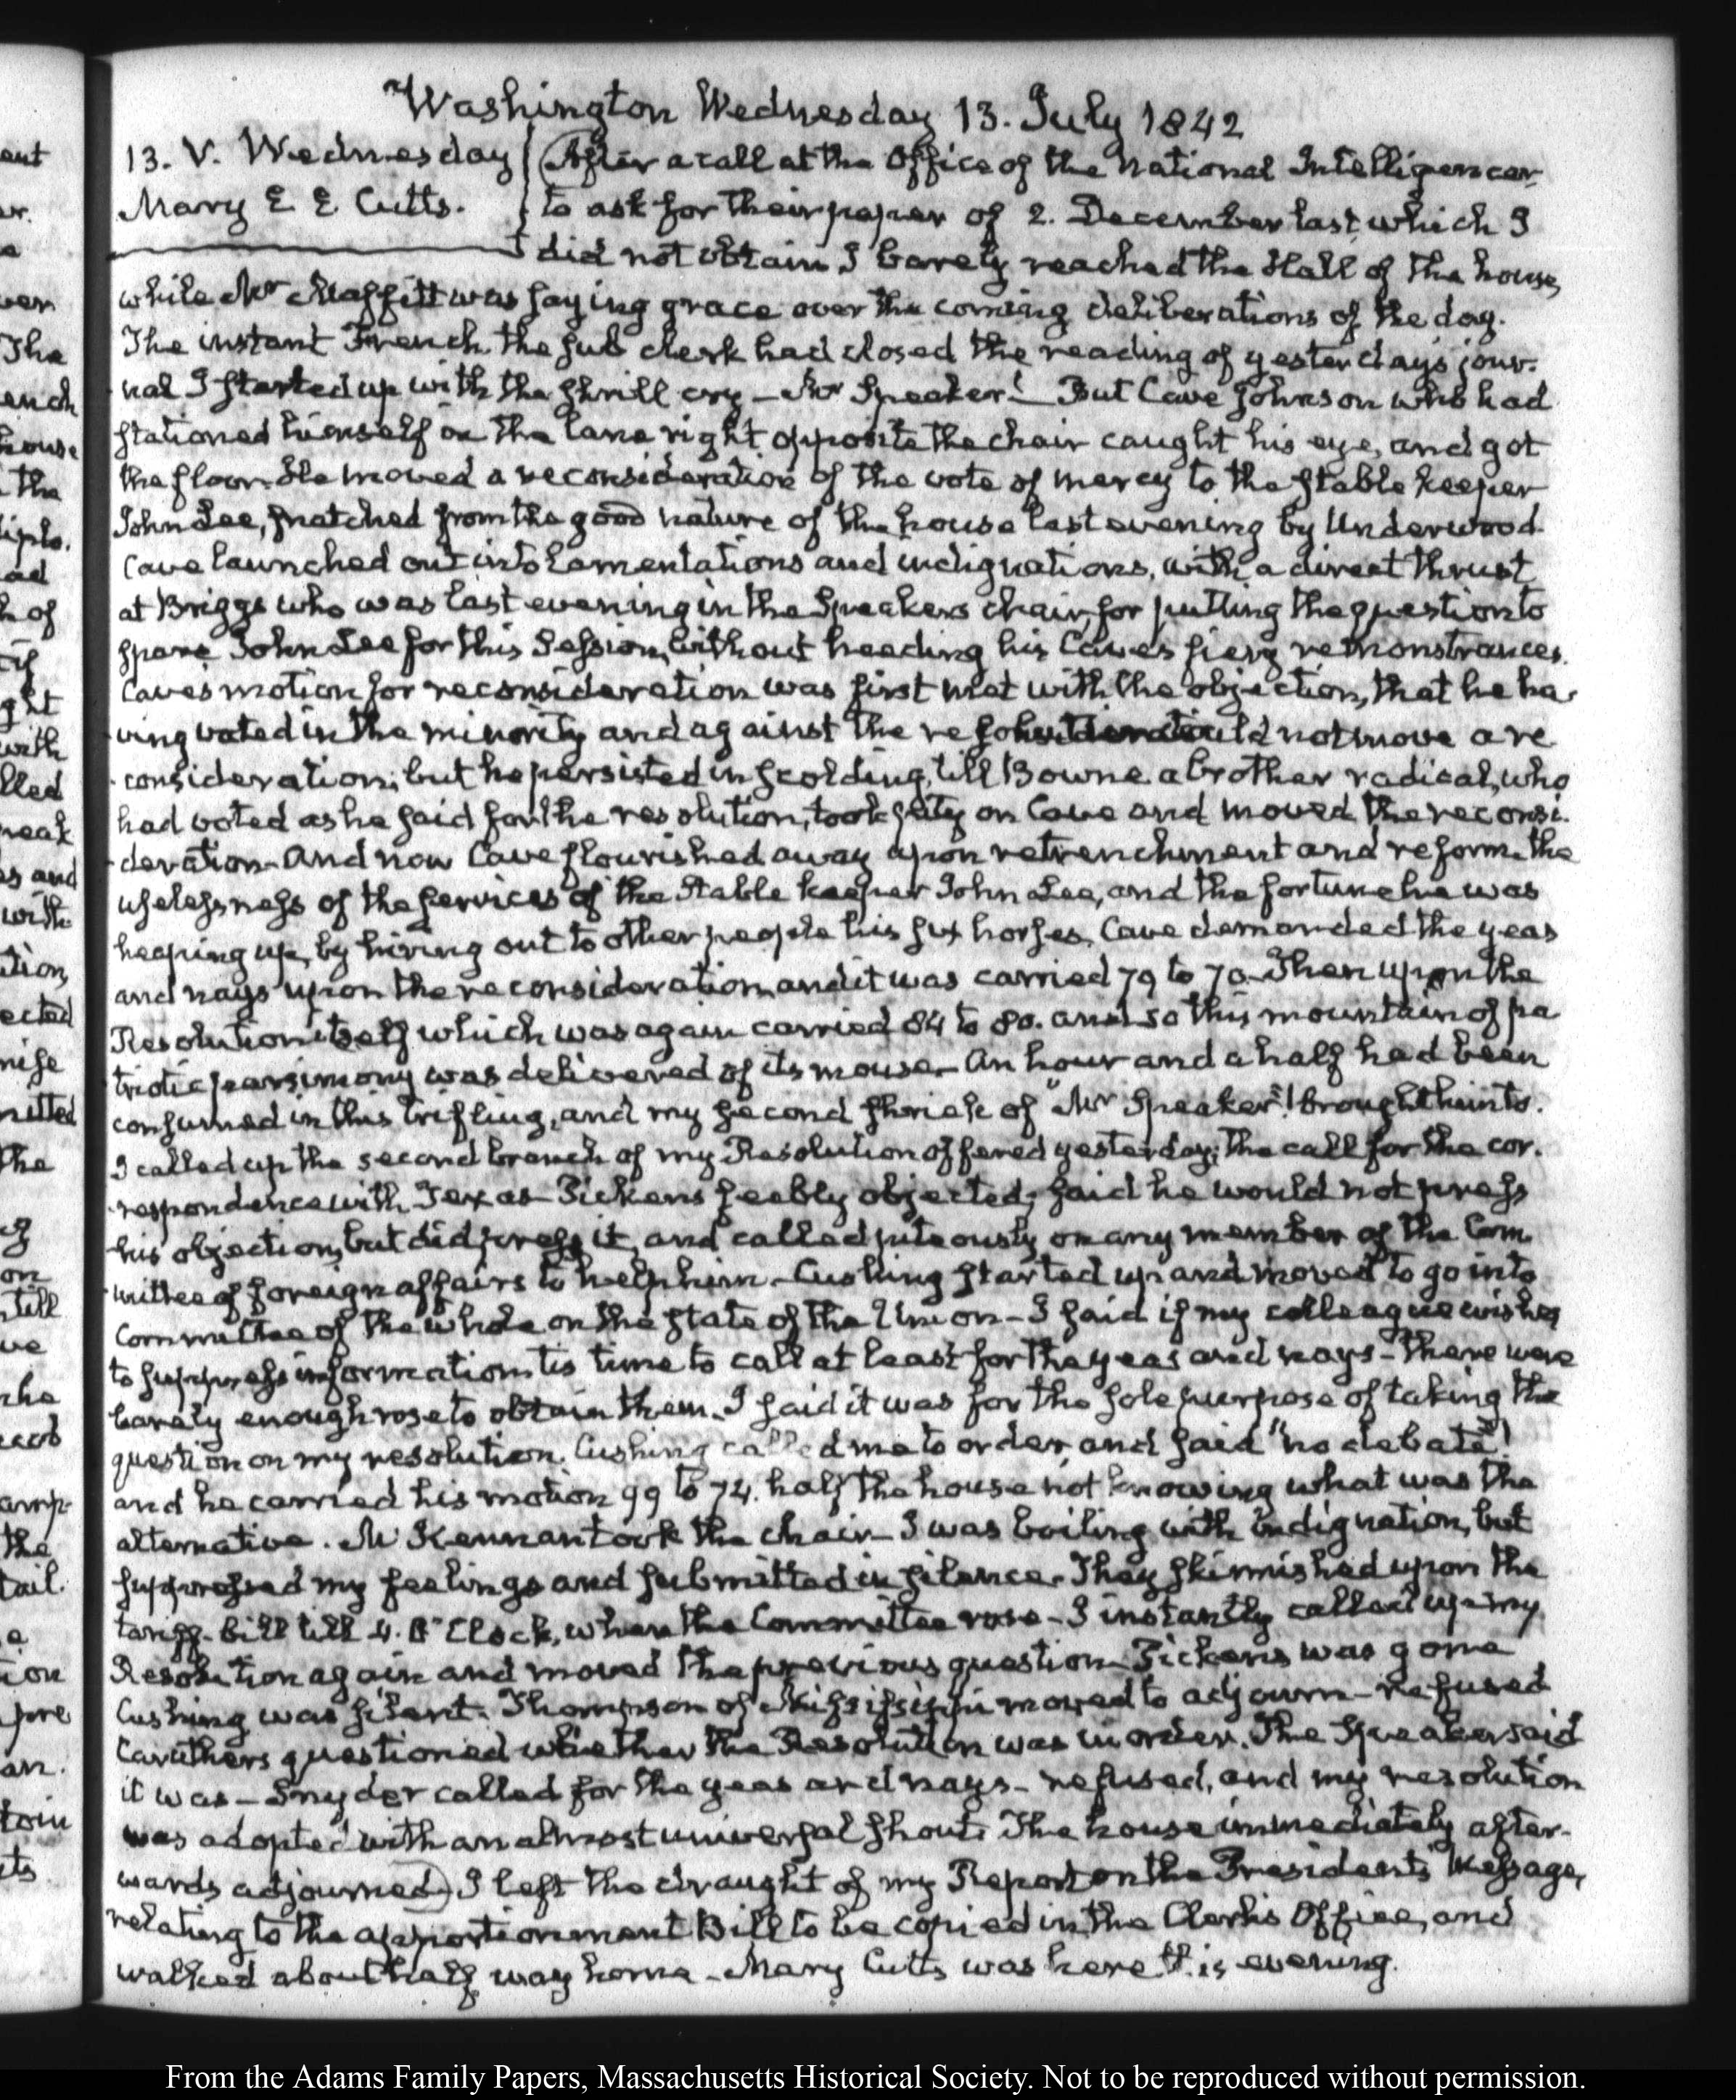 Washington Wednesday 13. July 1842
13. V. Wednesday
Mary E E Cutts.
After a call at the Office of the National Intelligencer
to ask for their paper of 2. December last which I
did not obtain I barely reached the Hall of the house,
while Mr Maffitt was saying grace over the coming deliberations of the day.
The instant French the sub clerk had closed the reading of yesterday's jour-
nal I started up with the shrill cry — Mr Speaker! — But Cave Johnson who had
stationed himself in the lane right opposite the chair caught his eye, and got
the floor. He moved a reconsideration of the vote of mercy to the stable keeper
John Lee, snatched from the good nature of the house last evening by Underwood.
Cave launched out into lamentations and indignations, with a direct thrust
at Briggs who was last evening in the Speakers chair, for putting the question to
spare John Lee for this Session, without heeding his Caves fiery remonstrances.
Caves motion for reconsideration was first met with the objection, that he ha-
ving voted in the minority and against the could not move a re
consideration; but he persisted in scolding, till Bowne a brother radical, who
had voted as he said for the resolution, took pity on Cave and moved the reconsi-
deration. And now Cave flourished away upon retrenchment and reform, the
uselessness of the services of the Stable keeper John Lee, and the fortune he was
heaping up, by hiring out to other people his six horses. Cave demanded the yeas
and nays upon the reconsideration and it was carried 79 to 70. Then upon the
Resolution itself which was again carried 84 to 80. and so this mountain of pa
triotic parsimony was delivered of its mouse. An hour and a half had been
consumed in this trifling, and my second shriek of "Mr Speaker"! brought him to.
I called up the second branch of my Resolution offered yesterday; the call for the cor-
respondence with Texas — Pickens feebly objected; said he would not press
his objection, but did press it, and called piteously on any member of the Com
mittee of foreign affairs to help him. Cushing started up and moved to go into
Committee of the whole on the state of the Union — I said if my colleague wishes
to suppress information tis time to call at least for the yeas and nays — there were
barely enough rose to obtain them. I said it was for the sole purpose of taking the
question on my resolution. Cushing called me to order and said "no debate"!
and he carried his motion 99 to 74. half the house not knowing what was the
alternative. McKennan took the chair — I was boiling with indignation, but
suppressed my feelings and submitted in silence. They skirmished upon the
tariff-bill till 4. O'Clock, when the Committee rose — I instantly called up my
Resolution again and moved the previous question. Pickens was gone
Cushing was silent. Thompson of Mississippi moved to adjourn — refused
Caruthers questioned whether the Resolution was in order. The Speaker said
it was — Snyder called for the yeas and nays — refused, and my resolution
was adopted with an almost universal shout. The house immediately after-
wards adjourned. I left the draught of my Report on the Presidents Message,
relating to the apportionment Bill to be copied in the Clerks Office, and
walked about half way home. Mary Cutts was here this evening.
From the Adams Family Papers, Massachusetts Historical Society. Not to be reproduced without permission.